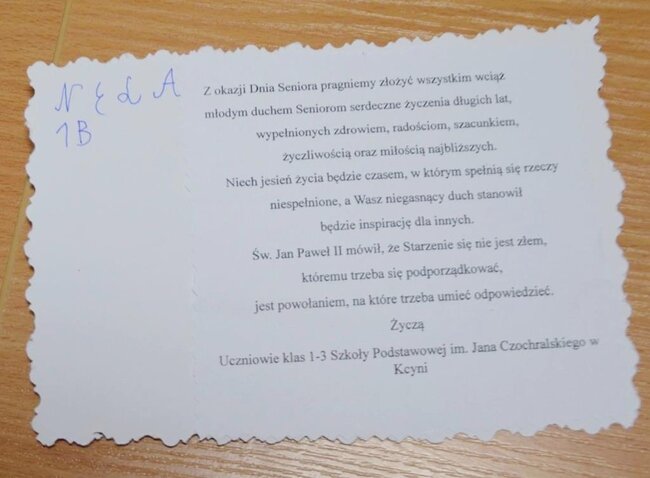 N E L A
1B
Z okazji Dnia Seniora pragniemy złożyć wszystkim wciąż
młodym duchem Seniorom serdeczne życzenia długich lat,
wypełnionych zdrowiem, radościom, szacunkiem,
życzliwością oraz miłością najbliższych.
Niech jesień życia będzie czasem, w którym spełnią się rzeczy
niespełnione, a Wasz niegasnący duch stanowił
będzie inspirację dla innych.
Św. Jan Paweł II mówił, że Starzenie się nie jest złem,
któremu trzeba się podporządkować,
jest powołaniem, na które trzeba umieć odpowiedzieć.
Życzą
Uczniowie klas 1-3 Szkoły Podstawowej im. Jana Czochralskiego w
Kcyni